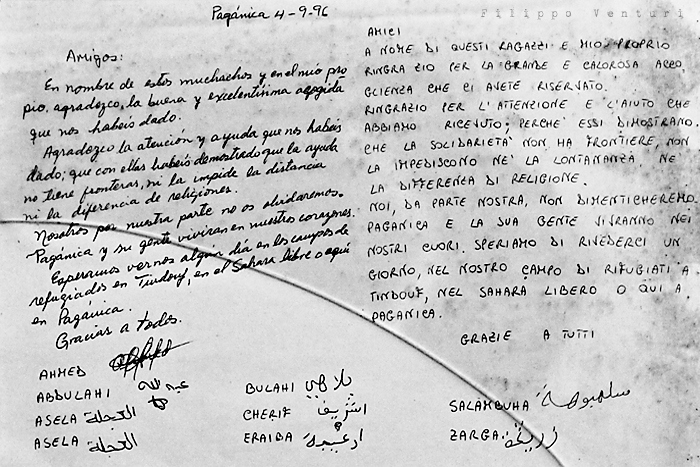 Filippo Venturi
Pagánica 4-9-96
Amigos:
En nombre de estos muchachos y en el mío pro
pio, agradezco, la buena y excelentísima acogida
que nos habéis dado.
Agradezco la atención y ayuda que nos habéis
dado; que con ellas habéis demostrado que la ayuda
no tiene fronteras, ni la impide la distancia
ni la diferencia de religiones.
Nosotros por nuestra parte no os olvidaremos.
Pagánica y su gente vivirán en nuestros corazones.
Esperamos vernos algún día en los campos de
refugiados en Tindouf, en el Sahara libre o aquí
en Pagánica.
Gracias a todos.
AMICI
A NOME DI QUESTI RAGAZZI E MIO PROPRIO
RINGRAZIO PER LA GRANDE E CALOROSA ACCO
GLIENZA CHE CI AVETE RISERVATO.
RINGRAZIO PER L'ATTENZIONE E L'AIUTO CHE
ABBIAMO RICEVUTO; PERCHE' ESSI DIMOSTRANO
CHE LA SOLIDARIETA' NON HA FRONTIERE, NON
LA IMPEDISCONO NE' LA LONTANANZA, NE'
LA DIFFERENZA DI RELIGIONE.
NOI, DA PARTE NOSTRA, NON DIMENTICHEREMO.
PAGANICA E LA SUA GENTE VIVRANNO NEI
NOSTRI CUORI. SPERIAMO DI RIVEDERCI UN
GIORNO, NEL NOSTRO CAMPO DI RIFUGIATI A
TINDOUF, NEL SAHARA LIBERO O QUI A
PAGANICA.
GRAZIE A TUTTI
AHMED
ABDULAHI عبد الله
ASELA العجلة
ASELA العجلة
BULAHI بلاهي
CHERIF اشريف
ERAIBA
SALAMBUHA
ZARGA زريقة